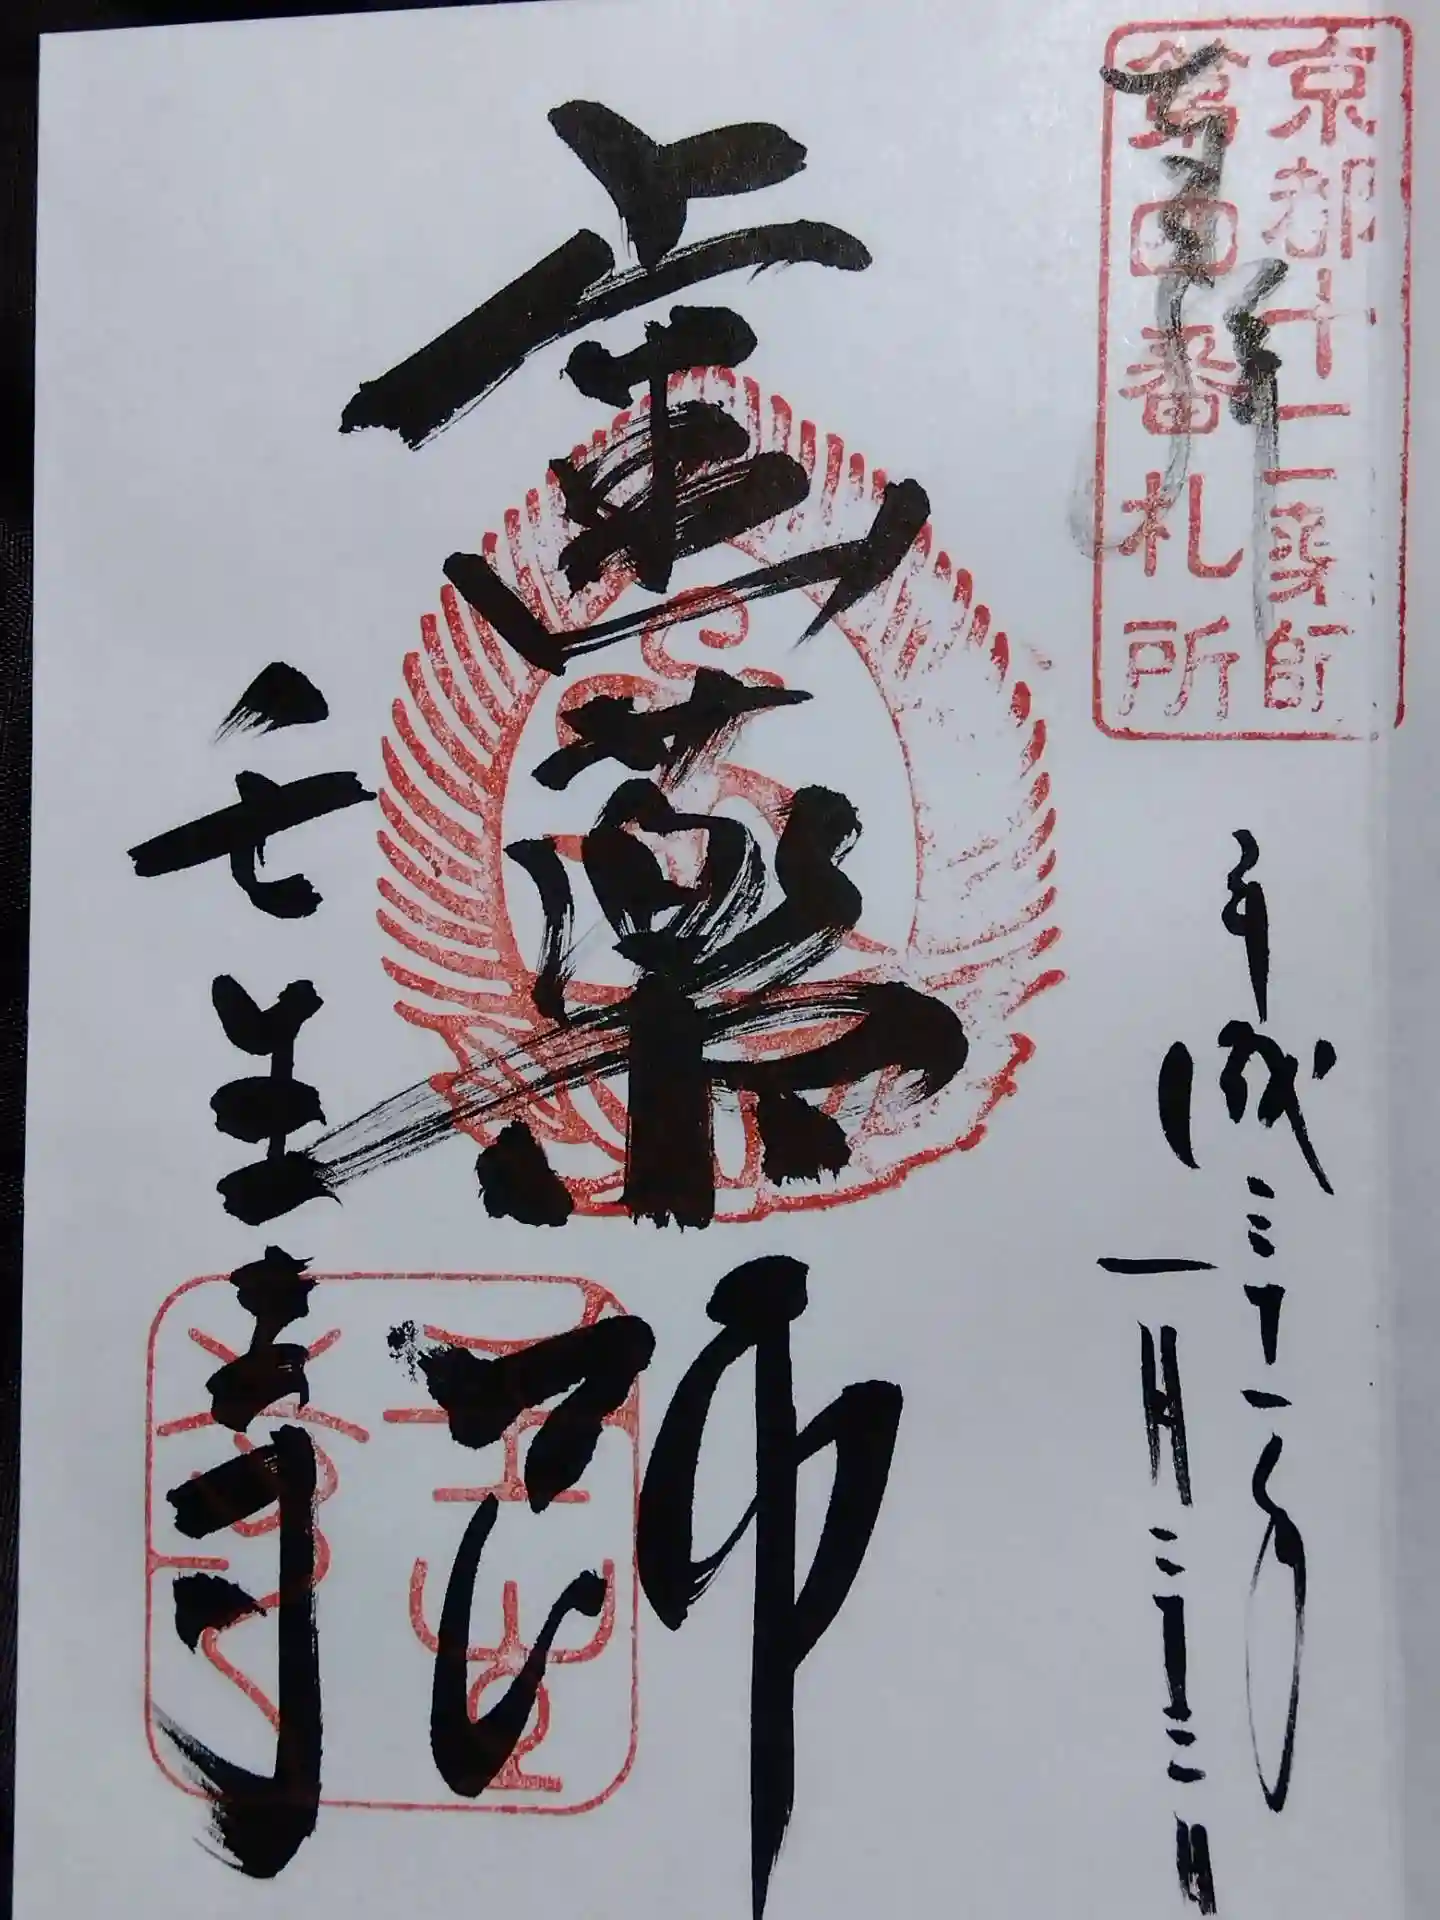 京都十二薬師
第四番札所
奉拝
平成三十一年
一月
歯薬師
壬生寺